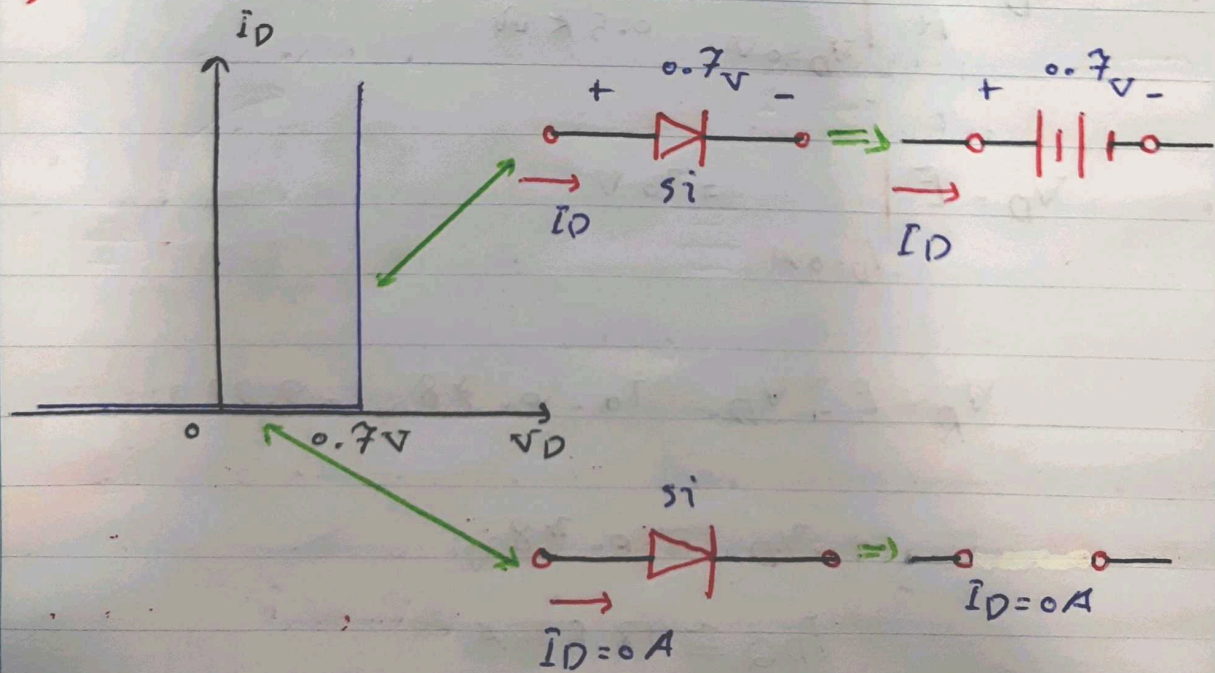 ID
+ 0.7V -
Si
ID
+ 0.7V -
ID
0
0.7V
VD
Si
ID=0A
ID=0A